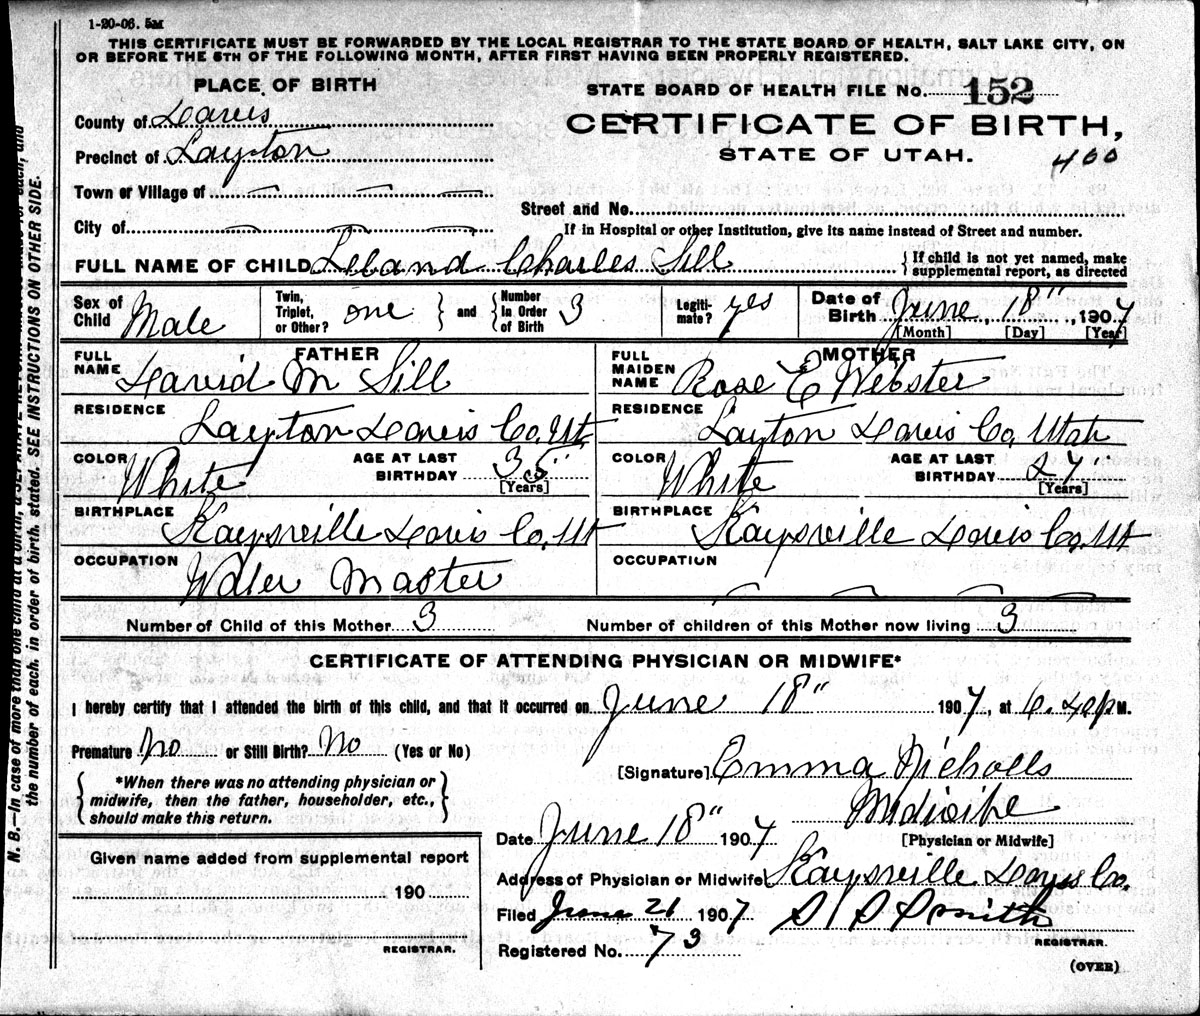 1-20-06. 5M
THIS CERTIFICATE MUST BE FORWARDED BY THE LOCAL REGISTRAR TO THE STATE BOARD OF HEALTH, SALT LAKE CITY, ON
OR BEFORE THE 5TH OF THE FOLLOWING MONTH, AFTER FIRST HAVING BEEN PROPERLY REGISTERED.
PLACE OF BIRTH
STATE BOARD OF HEALTH FILE NO. 152
County of Davis
CERTIFICATE OF BIRTH,
Precinct of Layton
STATE OF UTAH.
400
Town or Village of
Street and No.
City of
If in Hospital or other Institution, give its name instead of Street and number.
FULL NAME OF CHILD Leland Charles Sill {If child is not yet named, make supplemental report, as directed
Sex of Child Male Twin, Triplet, or Other? one } and { Number in Order of Birth 3 Legitimate? yes Date of Birth June, 18", 1907
[Month] [Day] [Year]
FATHER
MOTHER
FULL NAME David M Sill
FULL MAIDEN NAME Rose E Webster
RESIDENCE Layton Davis Co. Ut
RESIDENCE Layton Davis Co, Utah
COLOR White AGE AT LAST BIRTHDAY 35" [Years]
COLOR White AGE AT LAST BIRTHDAY 27" [Years]
BIRTHPLACE Kaysville Davis Co. Ut
BIRTHPLACE Kaysville Davis Co. Ut
OCCUPATION Water Master
OCCUPATION
Number of Child of this Mother 3 Number of children of this Mother now living 3
CERTIFICATE OF ATTENDING PHYSICIAN OR MIDWIFE*
I hereby certify that I attended the birth of this child, and that it occurred on June 18" 1907, at 6.40 P M.
Premature No or Still Birth? No (Yes or No)
[Signature] Emma Nicholls
{*When there was no attending physician or
midwife, then the father, householder, etc.,
should make this return.}
Midwife
[Physician or Midwife]
Date June 18" 1907
Given name added from supplemental report
190
REGISTRAR.
Address of Physician or Midwife Kaysville Davis Co.
Filed June 21 1907
Smith
REGISTRAR.
Registered No. 73
(OVER)
N. B.—In case of more than one child at a birth, a SEPARATE RETURN must be made for each, and
the number of each, in order of birth, stated. SEE INSTRUCTIONS ON OTHER SIDE.